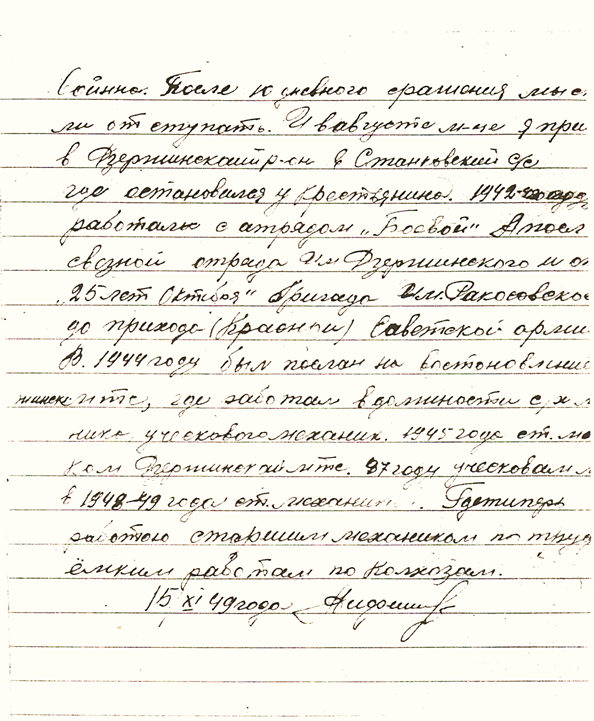 Сойнно. После 10 дневного сражения мы с
ли отступать. И в августе м-це я при
в Дзержинский р-он в Станковский с/с
где остановался у крестьянина. 1942 года
работалс с атрядом "Боевой" А посл
связной отряда им Дзержинского и о
"25 лет Октября" бригада им. Ракосовско
до прихода (Красной) Саветской арми
В. 1944 году был послан на востоновление
мтс, где работал в должности
ника, уческового механик. 1945 года ст. ме
ком Дзержинскай мтс. 47 году ученковым м
в 1948-49 года ст. механик.
работою старшим механиком по труд
ёмким работам по Колхозам.
15 XI 49 года